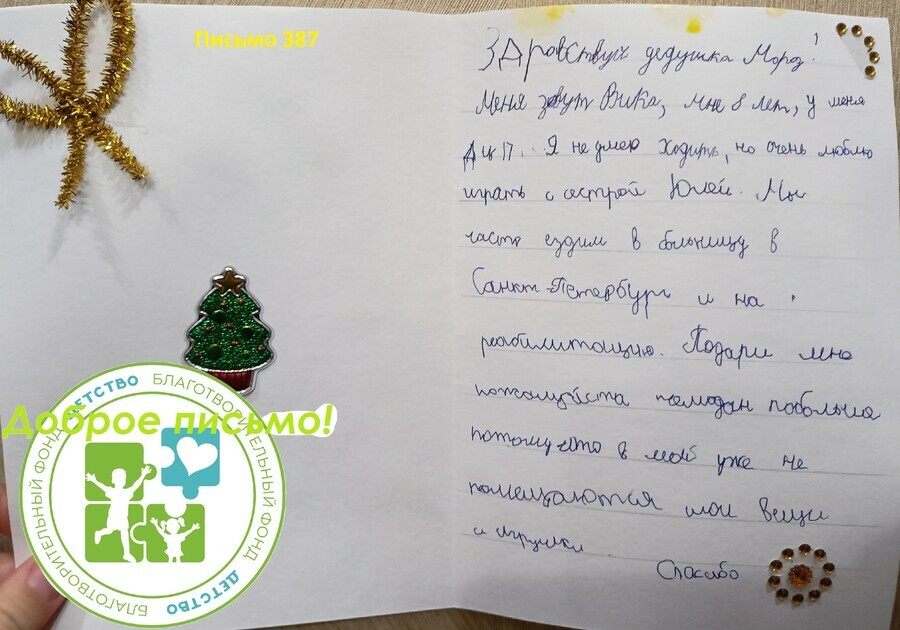 Письмо 387
Здравствуй дедушка Мороз!
Меня зовут Вика, мне 8 лет, у меня
ДЦП. Я не умею ходить, но очень люблю
играть с сестрой Юлей. Мы
часто ездим в больницу в
Санкт-Петербург и на
реабилитацию. Подари мне
пожалуйста чемодан побольше
потому что в мой уже не
помещаются мои вещи
и игрушки
Спасибо
Доброе письмо!
БЛАГОТВОРИТЕЛЬНЫЙ ФОНД ДЕТСТВО
БЛАГОТВОРИТЕЛЬНЫЙ ФОНД ДЕТСТВО